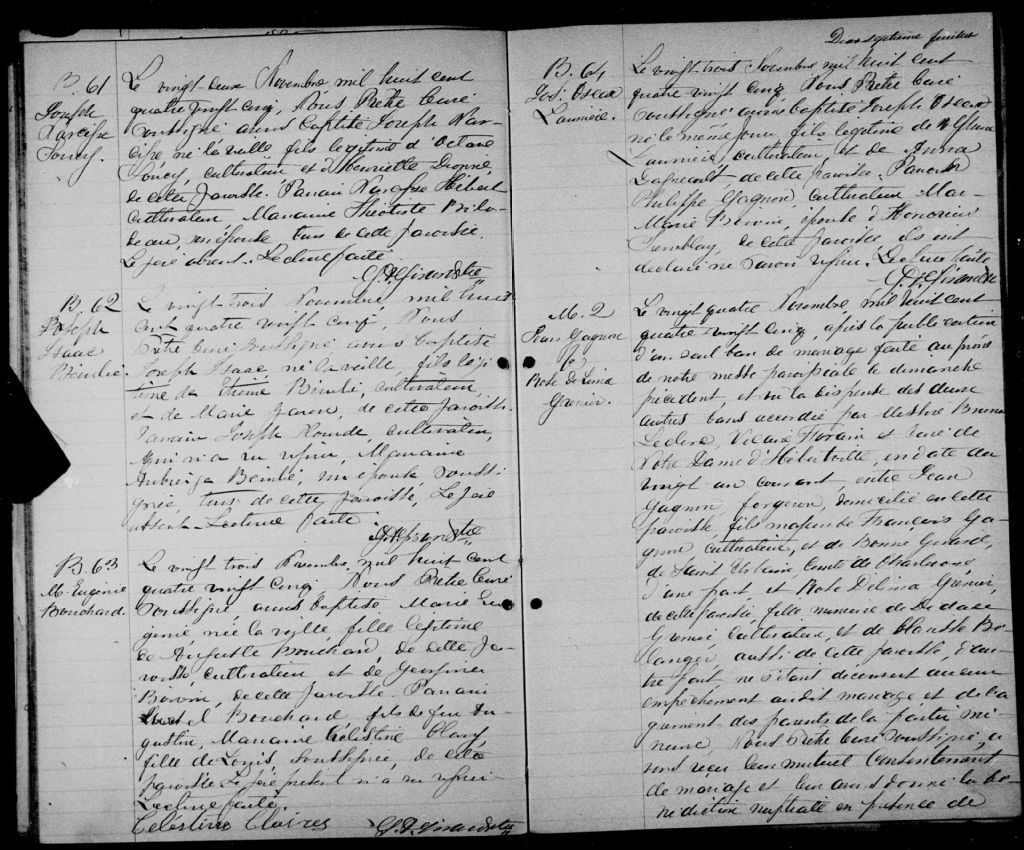 B. 61
Joseph
Narcisse
Soucy.
Le vingt deux Novembre mil huit cent
quatre vingt cinq, Nous Prêtre Curé
soussigné avons baptisé Joseph Nar-
cisse, né la veille fils légitime d'Octave
Soucy, cultivateur et d'Henriette Dionne,
de cette paroisse. Parrain Narcisse Hébert
cultivateur Marraine Théotiste Bilo-
deau, son épouse tous de cette paroisse.
Le père absent. Lecture faite
Ptre
B. 62
Joseph
Isaac
Boulé.
Le vingt trois Novembre, mil huit
cent quatre vingt cinq, Nous
Prêtre Curé soussigné avons baptisé
Joseph Isaac né la veille, fils légi
time de et
et de Marie de cette paroisse.
Parrain Joseph cultivateur,
qui n'a su signer, Marraine
son épouse, soussi
gnée, tous de cette paroisse, Le père
absent. Lecture faite
Ptre
B. 63
M. Eugénie
Bouchard.
Le vingt trois Novembre, mil huit cent
quatre vingt cinq, Nous Prêtre Curé
soussigné avons baptisé, Marie Eu
génie, née la veille, fille légitime
de Auguste Bouchard, de cette pa-
roisse, cultivateur et de Georgina
Boivin, de cette paroisse Parrain
Bouchard fils de feu Au-
gustin, Marraine Célestine
fille de Louis, soussignée, de cette
paroisse Le père présent n'a su signer
Lecture faite.
Célestine
Ptre
Deux septième feuillet
B. 64
Jos. Oscar
Laumière.
Le vingt trois Novembre mil huit cent
quatre vingt cinq Nous Prêtre Curé
soussigné avons baptisé Joseph Oscar
né le même jour fils légitime de
Laumière cultivateur, et de Anna
Dagneault, de cette paroisse. Parrain
Philippe Gagnon, cultivateur Mar-
Marie Boivin, épouse d'Honorius
Tremblay, de cette paroisse ils ont
déclaré ne savoir signer. Lecture faite
Ptre
M. 2
Jean Gagnon
&
Rose de Lima
Grenier.
Le vingt quatre Novembre, mil huit cent
quatre vingt cinq, après la publication
d'un seul ban de mariage faite au prône
de notre messe paroissiale le dimanche
précédent, et vu la dispense des deux
autres bans accordée par Messire Bruno
Leclerc, Vicaire Forain et Curé de
Notre Dame d'Hébertville, en date du
vingt un courant, entre Jean
Gagnon, forgeron, domicilié en cette
paroisse, fils majeur de François Ga-
gnon cultivateur, et de Bonne Girard,
de Saint Urbain, Comté de Charlevoix
d'une part, et Rose Delima Grenier,
de cette paroisse, fille mineure de Didace
Grenier, cultivateur, et de Bé-
langer, aussi de cette paroisse, d'au-
tre part, ne s'étant découvert aucun
empêchement audit mariage et du con-
sentement des parents de la partie mi-
neure, Nous Prêtre Curé soussigné, a-
vons reçu leur mutuel Consentement
de mariage et leur avons donné la bé-
nédiction nuptiale en présence de